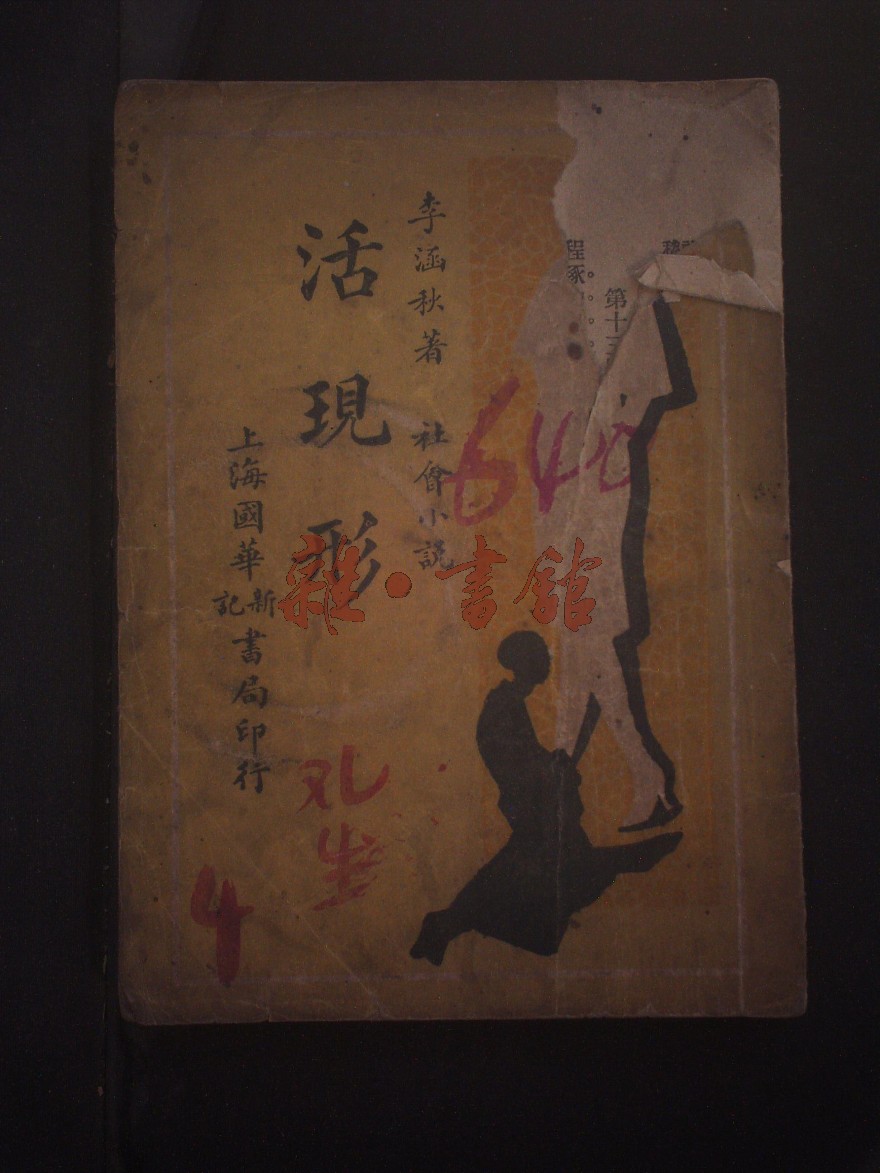 第十三
程琢
李涵秋著　社會小說
640
活現形
上海國華新記書局印行
雜·書館
4